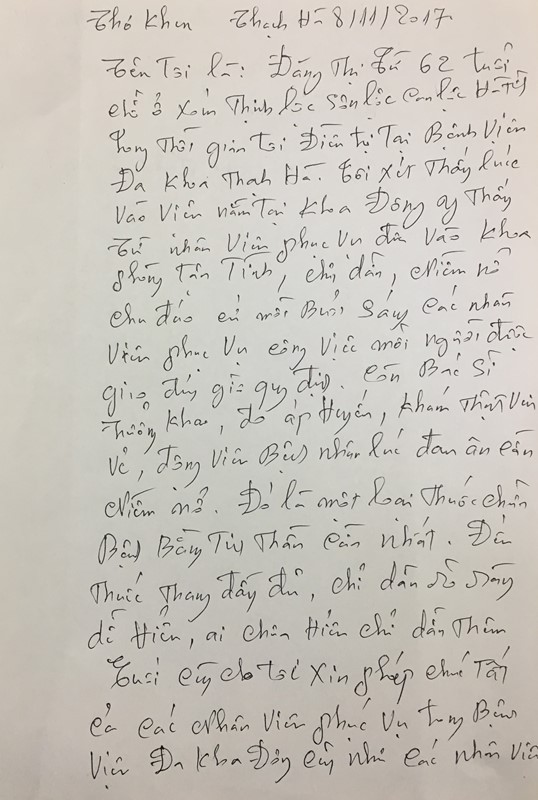 Thơ Khen Thạch Hà 8/11/2017
Tên Tôi là: Đặng Thị Tứ 62 tuổi
chỗ ở xóm Thịnh lộc Sơn lộc Can lộc Hà Tĩnh
Trong Thời gian tôi Điều trị Tại Bệnh Viện
Đa Khoa Thạch Hà. Tôi xét Thấy lúc
vào Viện nằm Tại Khoa Đông y Thấy
Từ nhân Viên phục Vụ đưa vào khoa
phòng tận Tình, chỉ dẫn, niềm nở
chu đáo cứ mỗi Buổi Sáng các nhân
viên phục Vụ công việc mỗi người được
giao đúng giờ quy định. Còn Bác Sĩ
Trưởng khoa, đo áp Huyết, khám Thật Vui
vẻ, động Viên Bệnh nhân lúc đau ân cần
niềm nở. Đó là một loại Thuốc chữa
Bệnh Bằng Tinh Thần cần nhất. Đến
Thuốc Thang đầy đủ, chỉ dẫn rõ ràng
dễ Hiểu, ai chưa Hiểu chỉ dẫn Thêm
Cuối cùng cho tôi xin phép chúc Tất
cả các Nhân Viên phục Vụ trong Bệnh
Viện Đa khoa Đông cũng như các nhân Viên